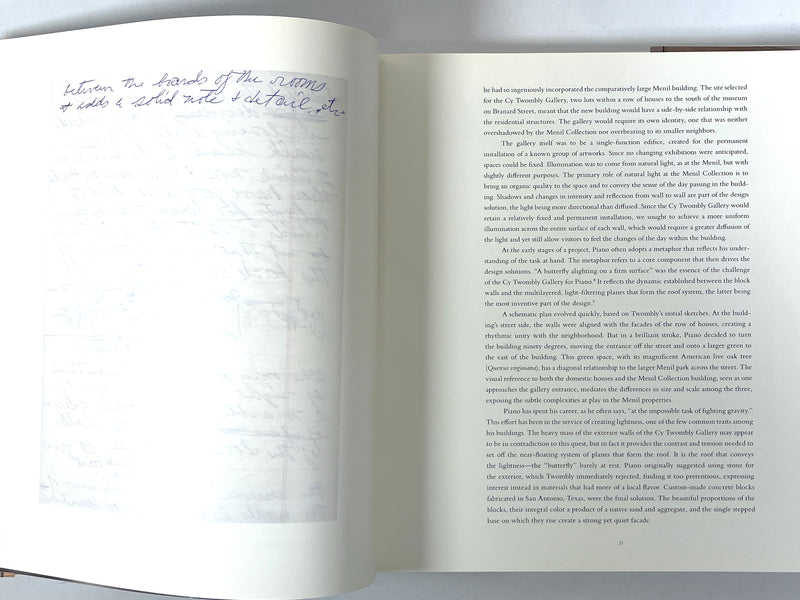 between the boards of the rooms
+ adds a solid note + detail, etc
he had so ingeniously incorporated the comparatively large Menil building. The site selected
for the Cy Twombly Gallery, two lots within a row of houses to the south of the museum
on Branard Street, meant that the new building would have a side-by-side relationship with
the residential structures. The gallery would require its own identity, one that was neither
overshadowed by the Menil Collection nor overbearing to its smaller neighbors.
The gallery itself was to be a single-function edifice, created for the permanent
installation of a known group of artworks. Since no changing exhibitions were anticipated,
spaces could be fixed. Illumination was to come from natural light, as at the Menil, but with
slightly different purposes. The primary role of natural light at the Menil Collection is to
bring an organic quality to the space and to convey the sense of the day passing in the build-
ing. Shadows and changes in intensity and reflection from wall to wall are part of the design
solution, the light being more directional than diffused. Since the Cy Twombly Gallery would
retain a relatively fixed and permanent installation, we sought to achieve a more uniform
illumination across the entire surface of each wall, which would require a greater diffusion of
the light and yet still allow visitors to feel the changes of the day within the building.
At the early stages of a project, Piano often adopts a metaphor that reflects his under-
standing of the task at hand. The metaphor refers to a core component that then drives the
design solutions. “A butterfly alighting on a firm surface” was the essence of the challenge
of the Cy Twombly Gallery for Piano. It reflects the dynamic established between the block
walls and the multilayered, light-filtering planes that form the roof system, the latter being
the most inventive part of the design.
A schematic plan evolved quickly, based on Twombly’s initial sketches. At the build-
ing’s street side, the walls were aligned with the facades of the row of houses, creating a
rhythmic unity with the neighborhood. But in a brilliant stroke, Piano decided to turn
the building ninety degrees, moving the entrance off the street and onto a larger green to
the east of the building. This green space, with its magnificent American live oak tree
(Quercus virginiana), has a diagonal relationship to the larger Menil park across the street. The
visual reference to both the domestic houses and the Menil Collection building, seen as one
approaches the gallery entrance, mediates the differences in size and scale among the three,
exposing the subtle complexities at play in the Menil properties.
Piano has spent his career, as he often says, “at the impossible task of fighting gravity.”
This effort has been in the service of creating lightness, one of the few common traits among
his buildings. The heavy mass of the exterior walls of the Cy Twombly Gallery may appear
to be in contradiction to this quest, but in fact it provides the contrast and tension needed to
set off the near-floating system of planes that form the roof. It is the roof that conveys
the lightness—the “butterfly” barely at rest. Piano originally suggested using stone for
the exterior, which Twombly immediately rejected, finding it too pretentious, expressing
interest instead in materials that had more of a local flavor. Custom-made concrete blocks
fabricated in San Antonio, Texas, were the final solution. The beautiful proportions of the
blocks, their integral color a product of a native sand and aggregate, and the single stepped
base on which they rise create a strong yet quiet facade.
21